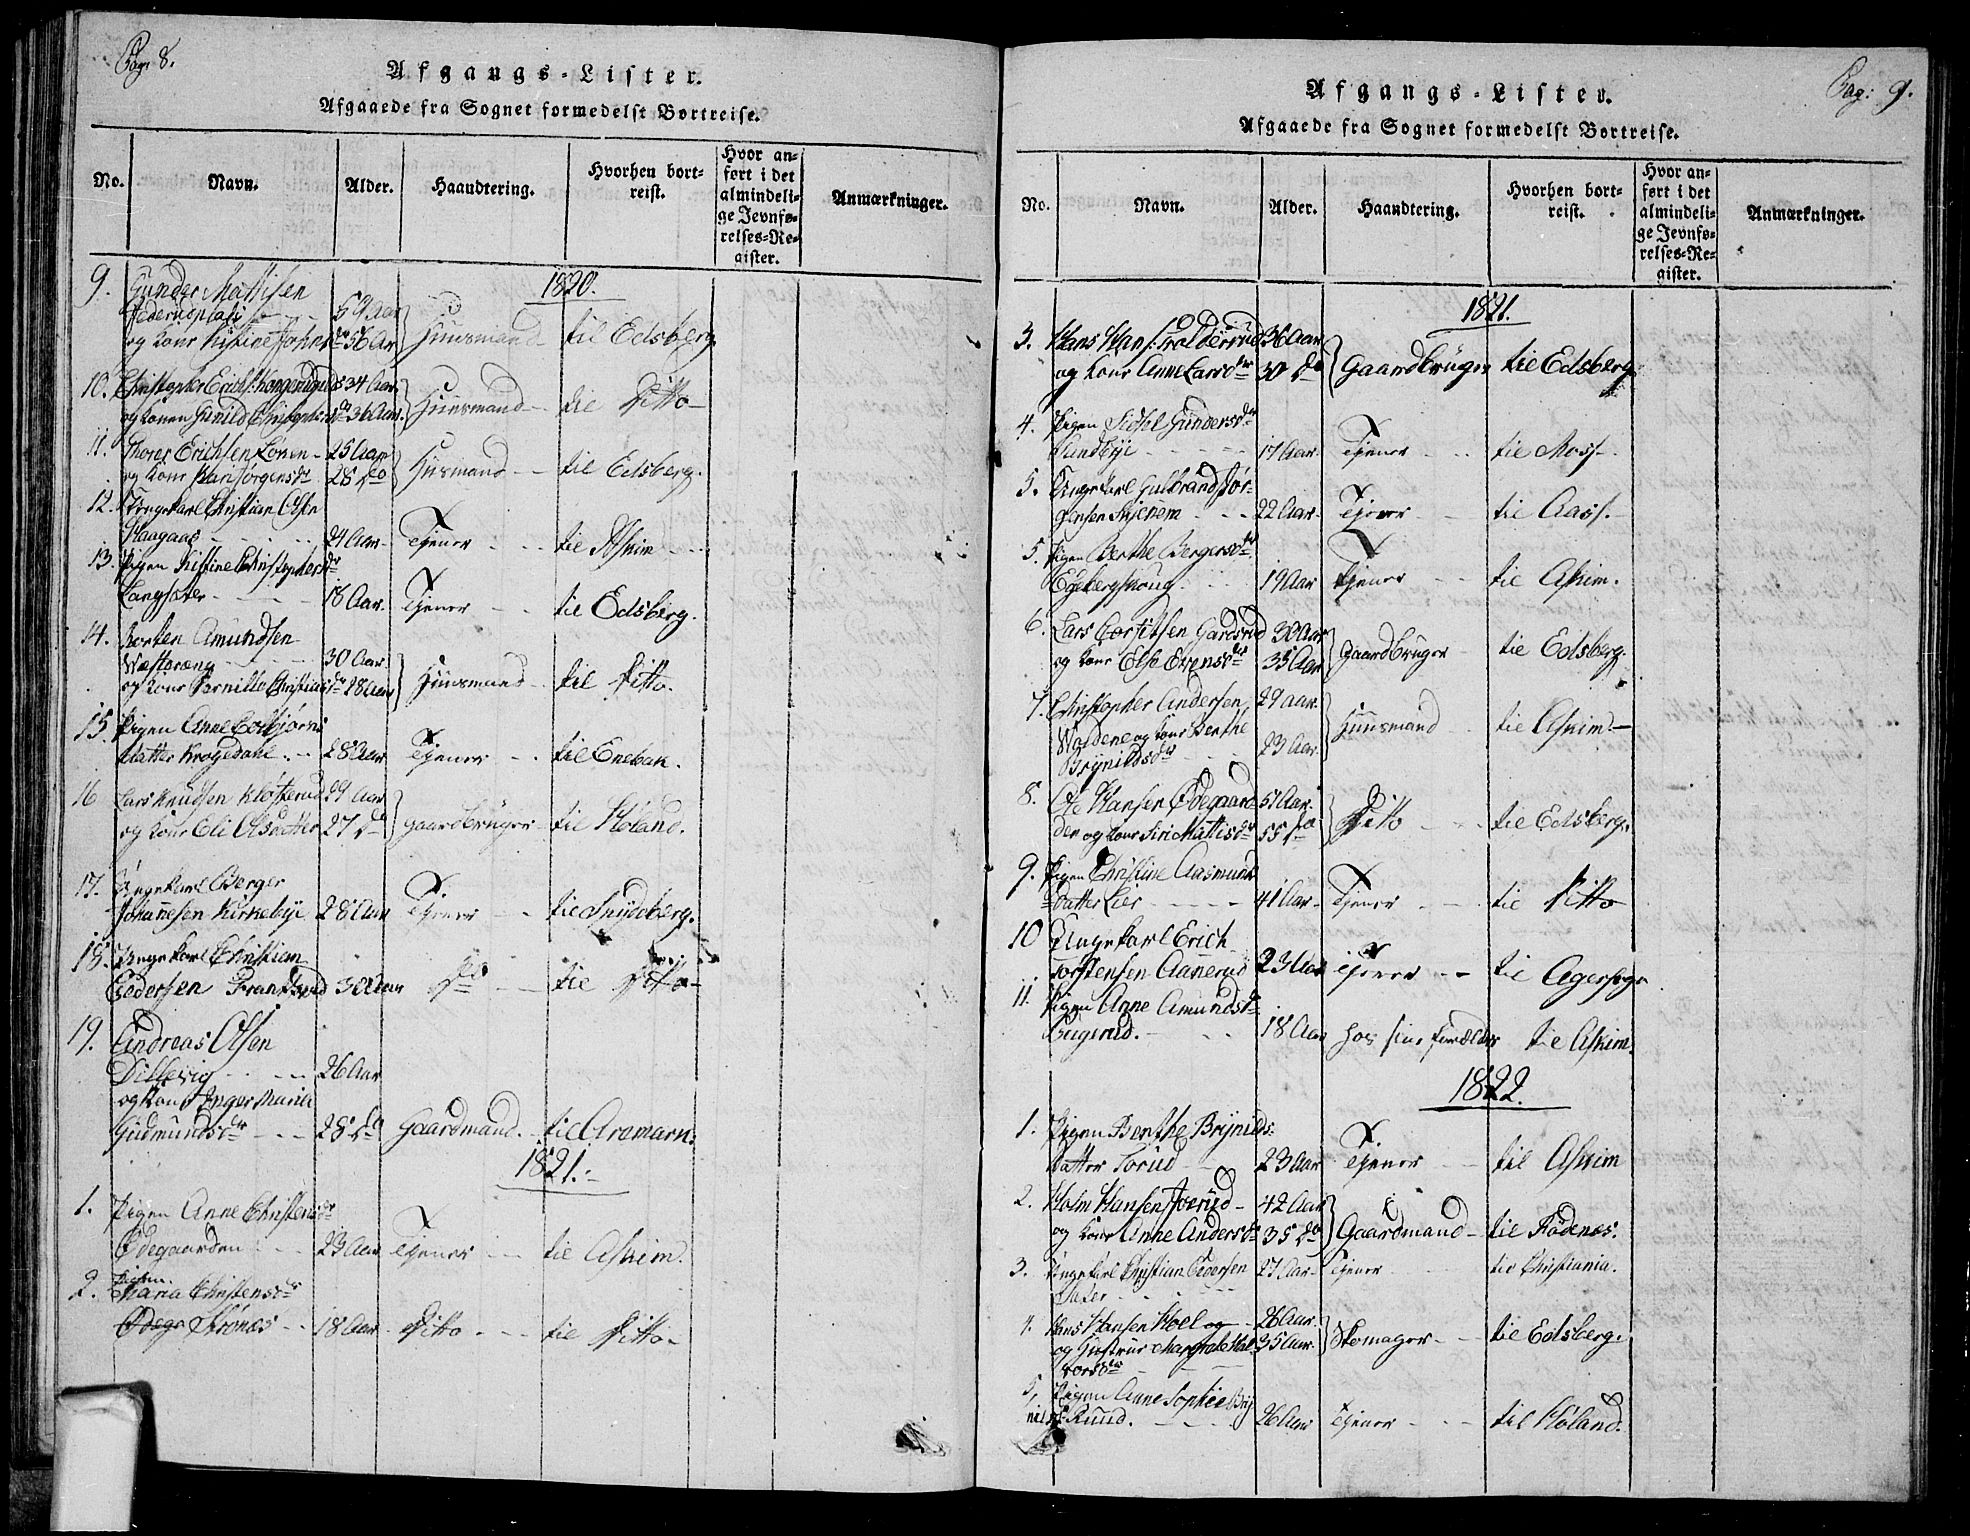 Pag: 8.
Afgangs-Lister.
Afgaaede fra Sognet formedelst Bortreise.
No. Navn. Alder. Haandtering. Hvorhen bortreist. Hvor anført i det almindelige Jevnførelses-Register. Anmærkninger.
1820.
9. Gunder Mattisen
59 Aar
og Kone Kistine Johns dr 56 Aar Huusmand til Edsberg
10. Christopher Erichs: 34 Aar
og Konen Gunild Christophersdr 36 Aar. Huusmand til Ditto
11. Thorer Erichsen Lønen 25 Aar
og Kone Kari Jørgensdr 28 do Husmand til Edsberg.
12. Ungekarl Christian Olsen
Haagaas 24 Aar Tjener til Askim
13. Pigen Kistine Christophersdr
Langsæter 18 Aar. Tjener til Edsberg.
14. Morten Amundsen
Westereng 30 Aar
og Kone Pernille Christiansdr 28 Aar Huusmand til Ditto.
15. Pigen Anne Torbjørns
datter Krogedahl 28 Aar Tjener til Enebak.
16 Lars Knudsen Kløsterud 29 Aar
og Kone Eli Olsdatter 27 do gaardbruger til Høland.
17. Ungekarl Berger
Johannesen Kirkebye 28 Aar Tjener til Snydeberg.
18. Ungekarl Christian
Pedersen Frantsrud 30 Aar do til Ditto
19. Andreas Olsen
Dillevig 26 Aar
og Kone Inger Maria
Gudmundsdr 28 do Gaardmand til Aremark.
1821.
1. Pigen Anne Christensdr
Ødegaarden 23 Aar Tjener til Askim.
2. Pigen
Maria Christensdr
Ødega Strønæs 18 Aar Ditto til Ditto
Pag: 9.
Afgangs-Lister.
Afgaaede fra Sognet formedelst Bortreise.
No. Navn. Alder. Haandtering. Hvorhen bortreist. Hvor anført i det almindelige Jevnførelses-Register. Anmærkninger.
1821.
3. Hans Hans: Trolderrud 36 Aar
og Kone Anne Larsdr 30 do Gaardbruger til Edsberg
4. Pigen Sidsel Gundersdr
Sundbye 17 Aar. Tjener til Moss
5. Ungekarl Gulbrand Jør-
gensen Skjenem 22 Aar Tjener til Aass.
5. Pigen Berthe Bergersdr
Egebergshoug 19 Aar Tjener til Askim.
6. Lars Torsteensen Gaardsrud 30 Aar
og Kone Else Evensdr 35 Aar gaardbruger til Edsberg.
7. Christopher Andersen 29 Aar.
Waldene og Kone Berthe
Brynildsdr 23 Aar. Huusmand til Askim
8. Ole Hansen Ødegaard 51 Aar.
den og Kone Siri Mattisdr 55 do Ditto til Edsberg.
9. Pigen Christine Aasmund
datter Lier 41 Aar Tjener til Ditto
10 Ungekarl Erich
Torstensen Aanerud 23 Aar Tjener til Agersogn
11. Pigen Anne Amundsdr
Bugerud. 18 Aar hos sine forældre til Askim.
1822.
1. Pigen Berthe Brynilds
datter Torud 23 Aar Tjener til Askim
2. Holm Hansen Joerud 42 Aar
og Kone Anne Andersdr 35 do Gaardmand til Rødenæs.
3. Ungekarl Christian Pedersen 27 Aar Tjener til Christiania.
Sæter
4. Hans Hansen Hoel og 26 Aar.
og Hustrue Margrete Hal- 35 Aar. Skomager til Edsberg.
vorsdr
5, Pigen Anne Sophie Bry
nildsdr Ruud. 26 Aar Tjener til Høland.